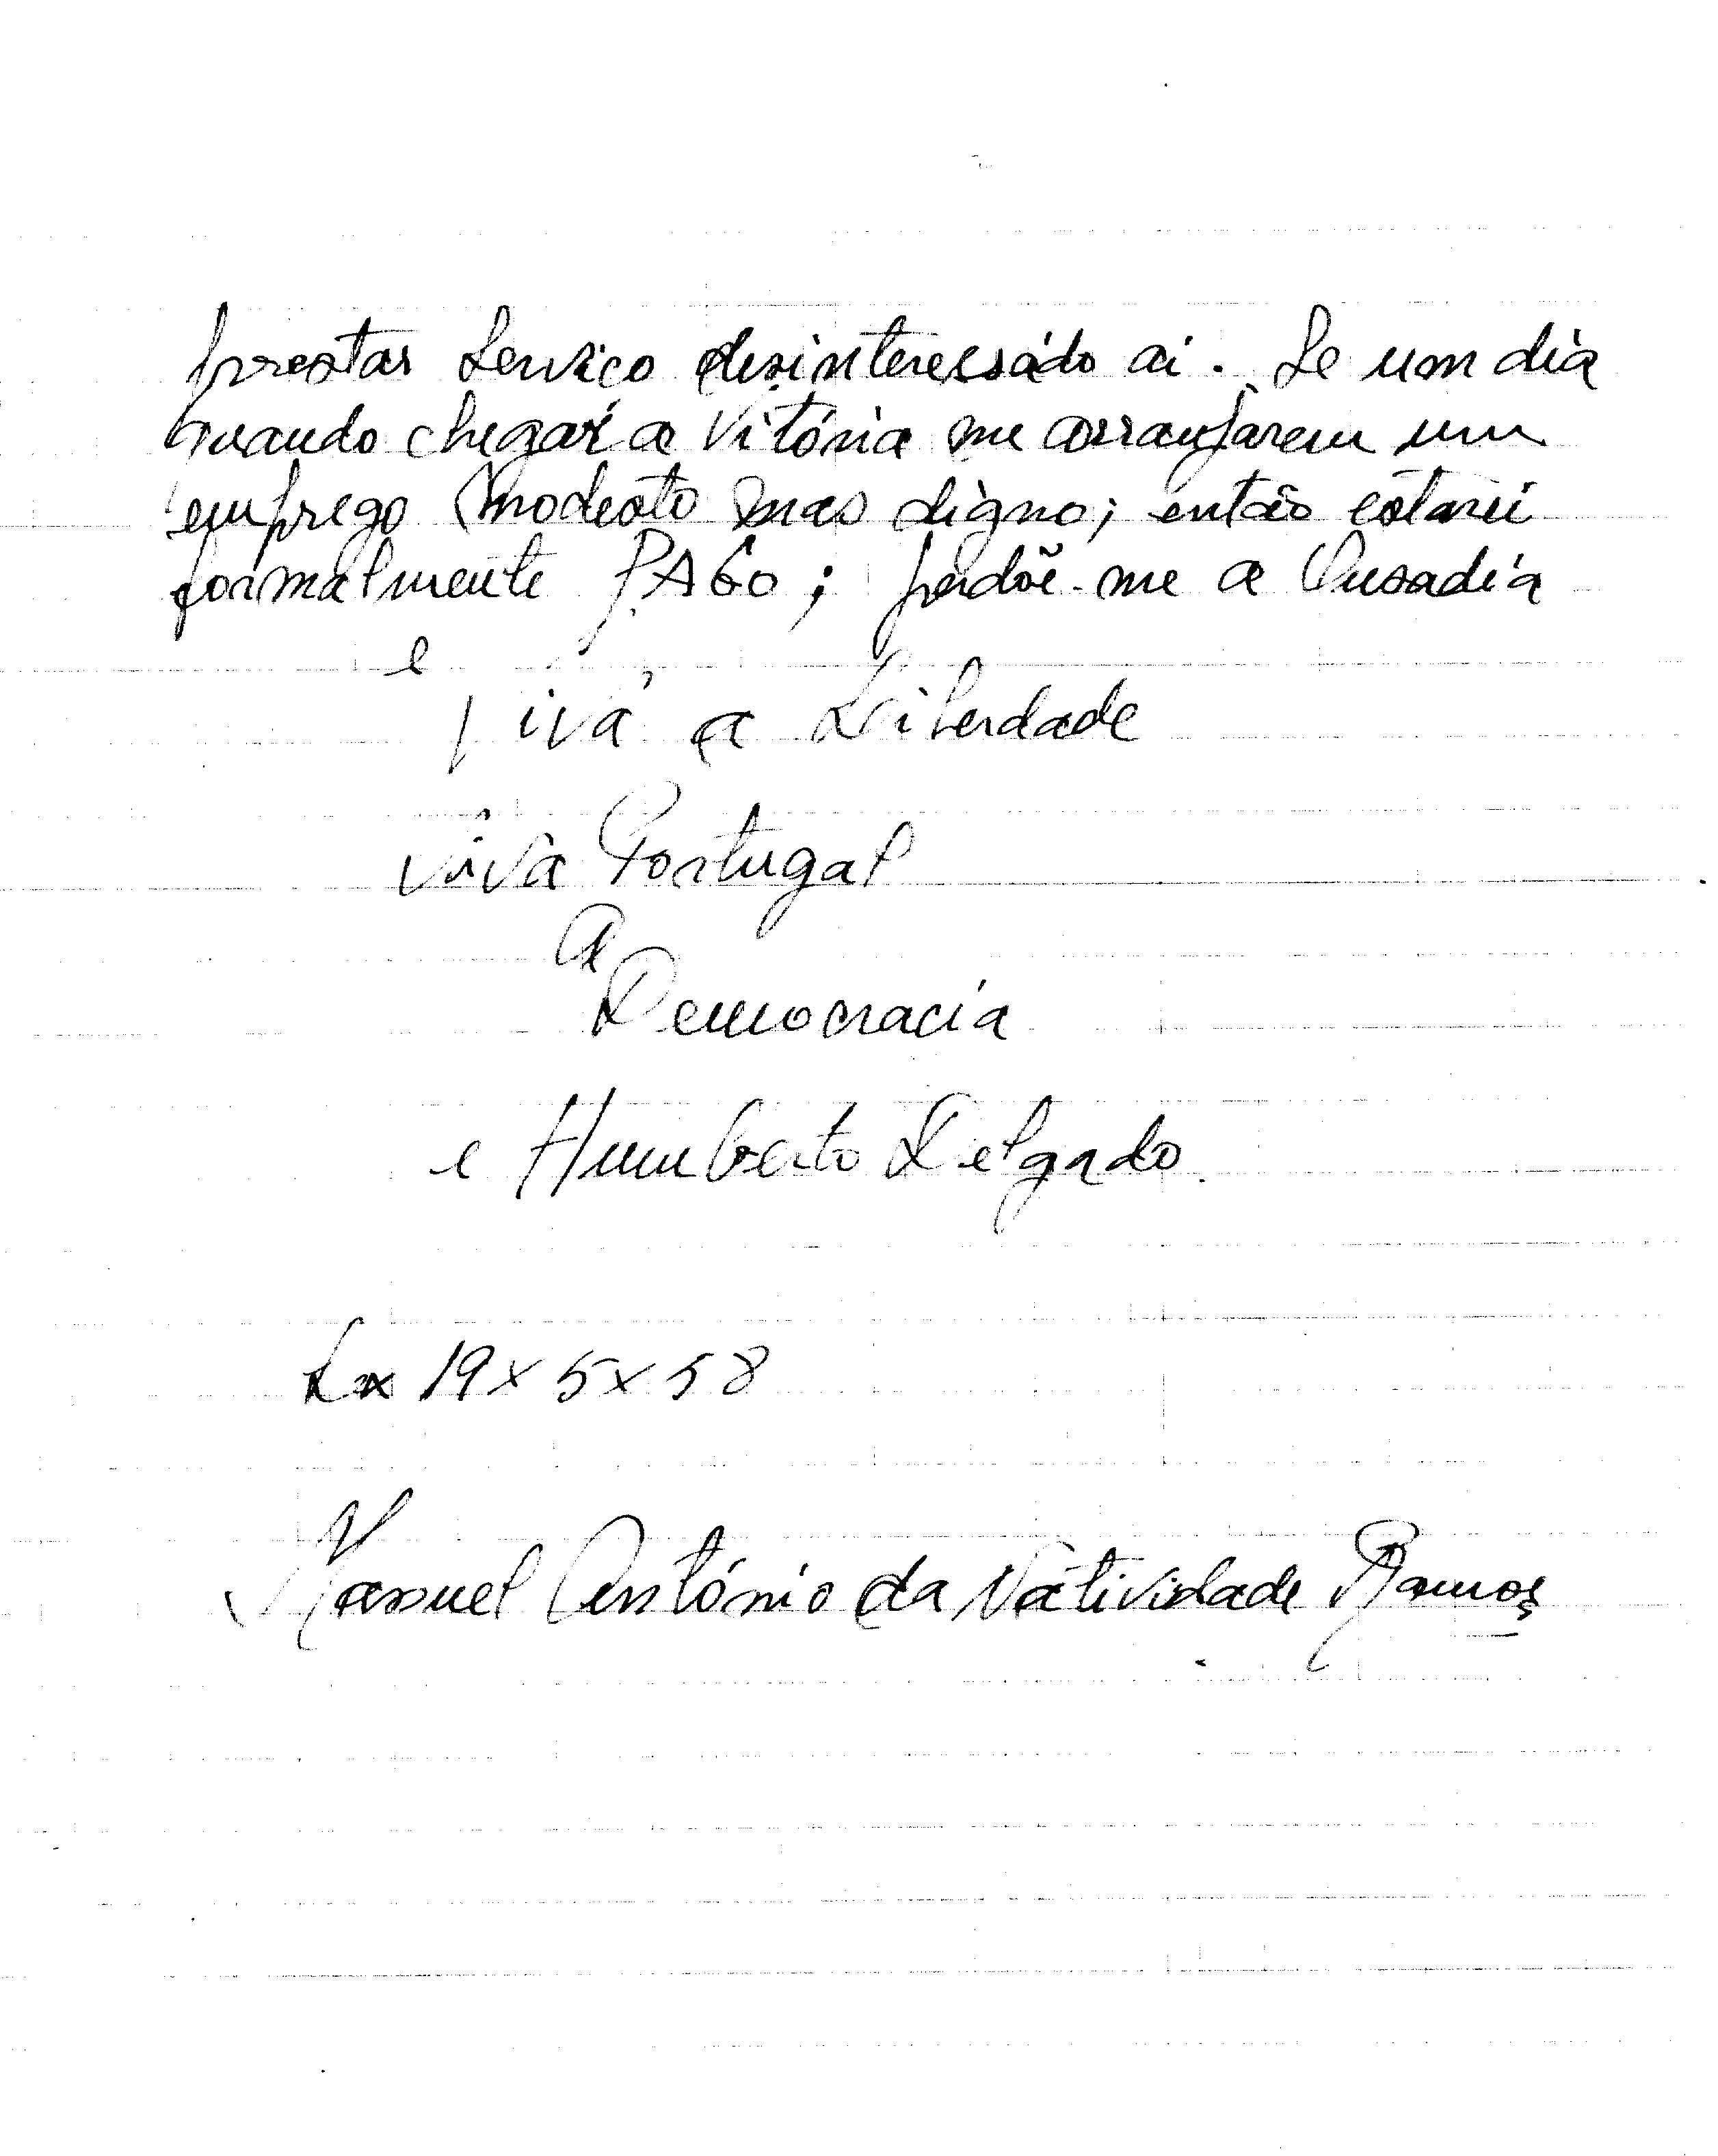 prestar serviço desinteressado aí. Se um dia
quando chegar a Vitória me arranjarem um
emprego modesto mas digno; então estarei
formalmente PAGO; perdõe-me a Ousadia
e
Viva a Liberdade
viva Portugal
A
Democracia
e Humberto Delgado.
Lx 19x5x58
Manuel António da Natividade Ramos